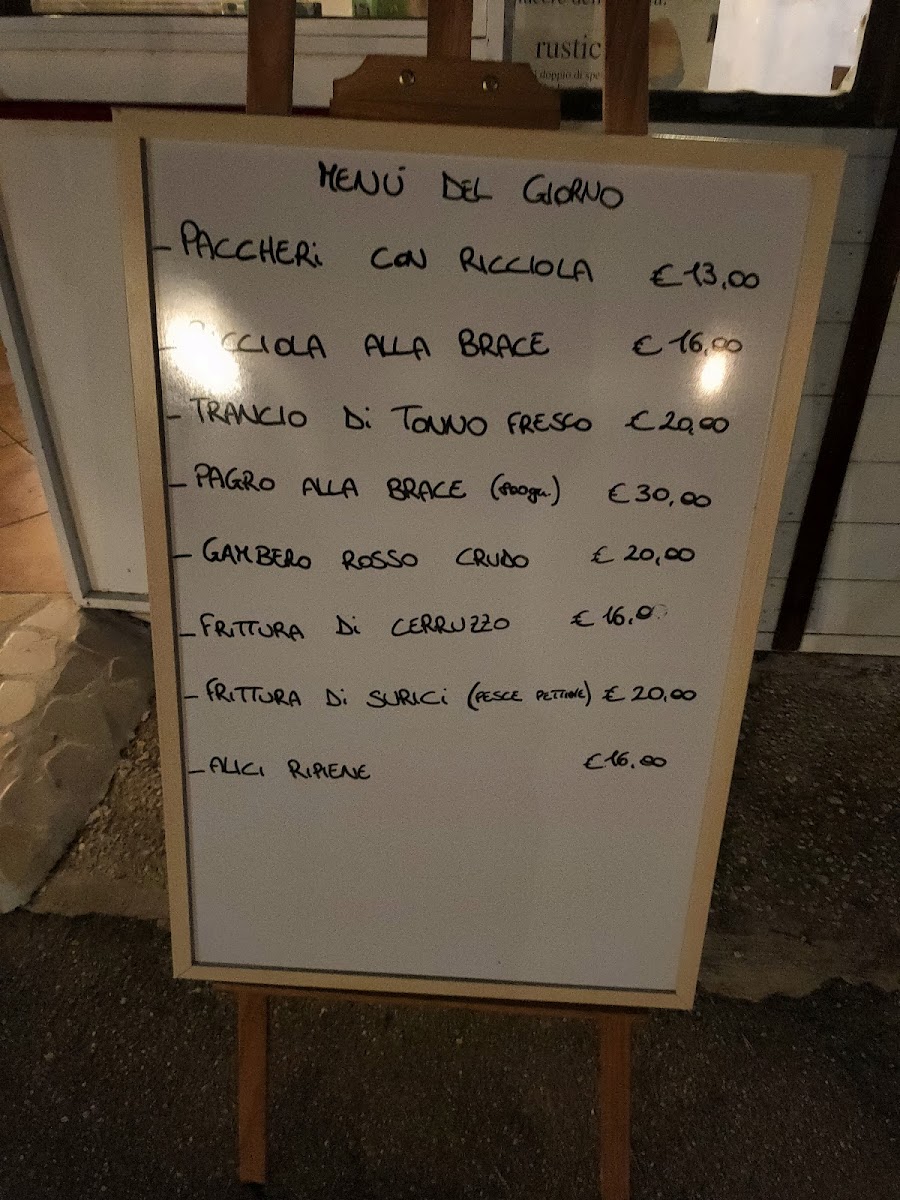 rustic
doppio di spe
MENÙ DEL GIORNO
- PACCHERI CON RICCIOLA € 13,00
- RICCIOLA ALLA BRACE € 16,00
- TRANCIO Di TONNO FRESCO € 20,00
- PAGRO ALLA BRACE (800gr) € 30,00
- GAMBERO ROSSO CRUDO € 20,00
- FRITTURA Di CERRUZZO € 16,00
- FRITTURA Di SURICI (PESCE PETTINE) € 20,00
- ALICI RIPIENE € 16,00